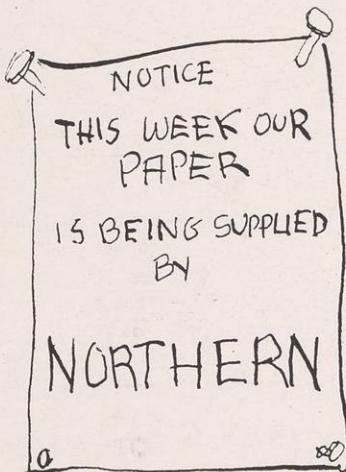 NOTICE
THIS WEEK OUR
PAPER
IS BEING SUPPLIED
BY
NORTHERN